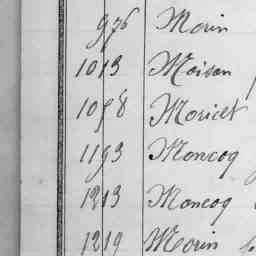 976 Morin
1013 Moison
1058 Moricet
1193 Moncoq
1213 Moncoq
1219 Morin